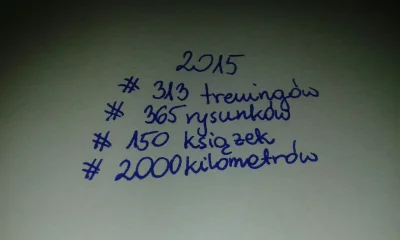 2015
# 313 treningów
# 365 rysunków
# 150 książek
# 2000 kilometrów